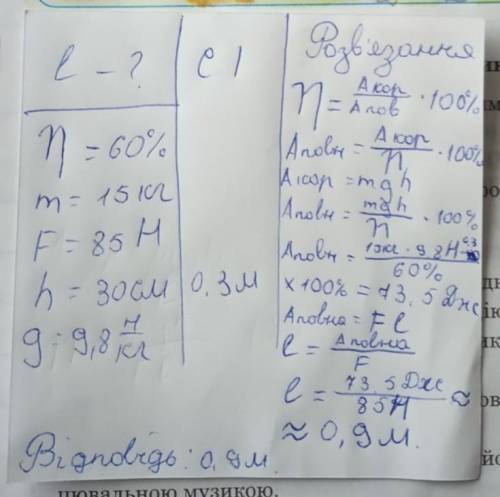 l - ?
η = 60%
m = 15 кг
F = 85 Н
h = 30 см
g = 9,8 Н/кг
СІ
0,3 м
Розв'язання
η = Aкор/Aпов · 100%
Aповн = Aкор/η · 100%
Aкор = mgh
Aповн = mgh/η · 100%
Aповн = 15кг · 9,8Н · 0,3/60%
× 100% = 73,5 Дж
Aповна = Fl
l = Aповна/F
l = 73,5 Дж/85Н ≈
≈ 0,9 м.
Відповідь: 0,9 м.
цювальною музикою.